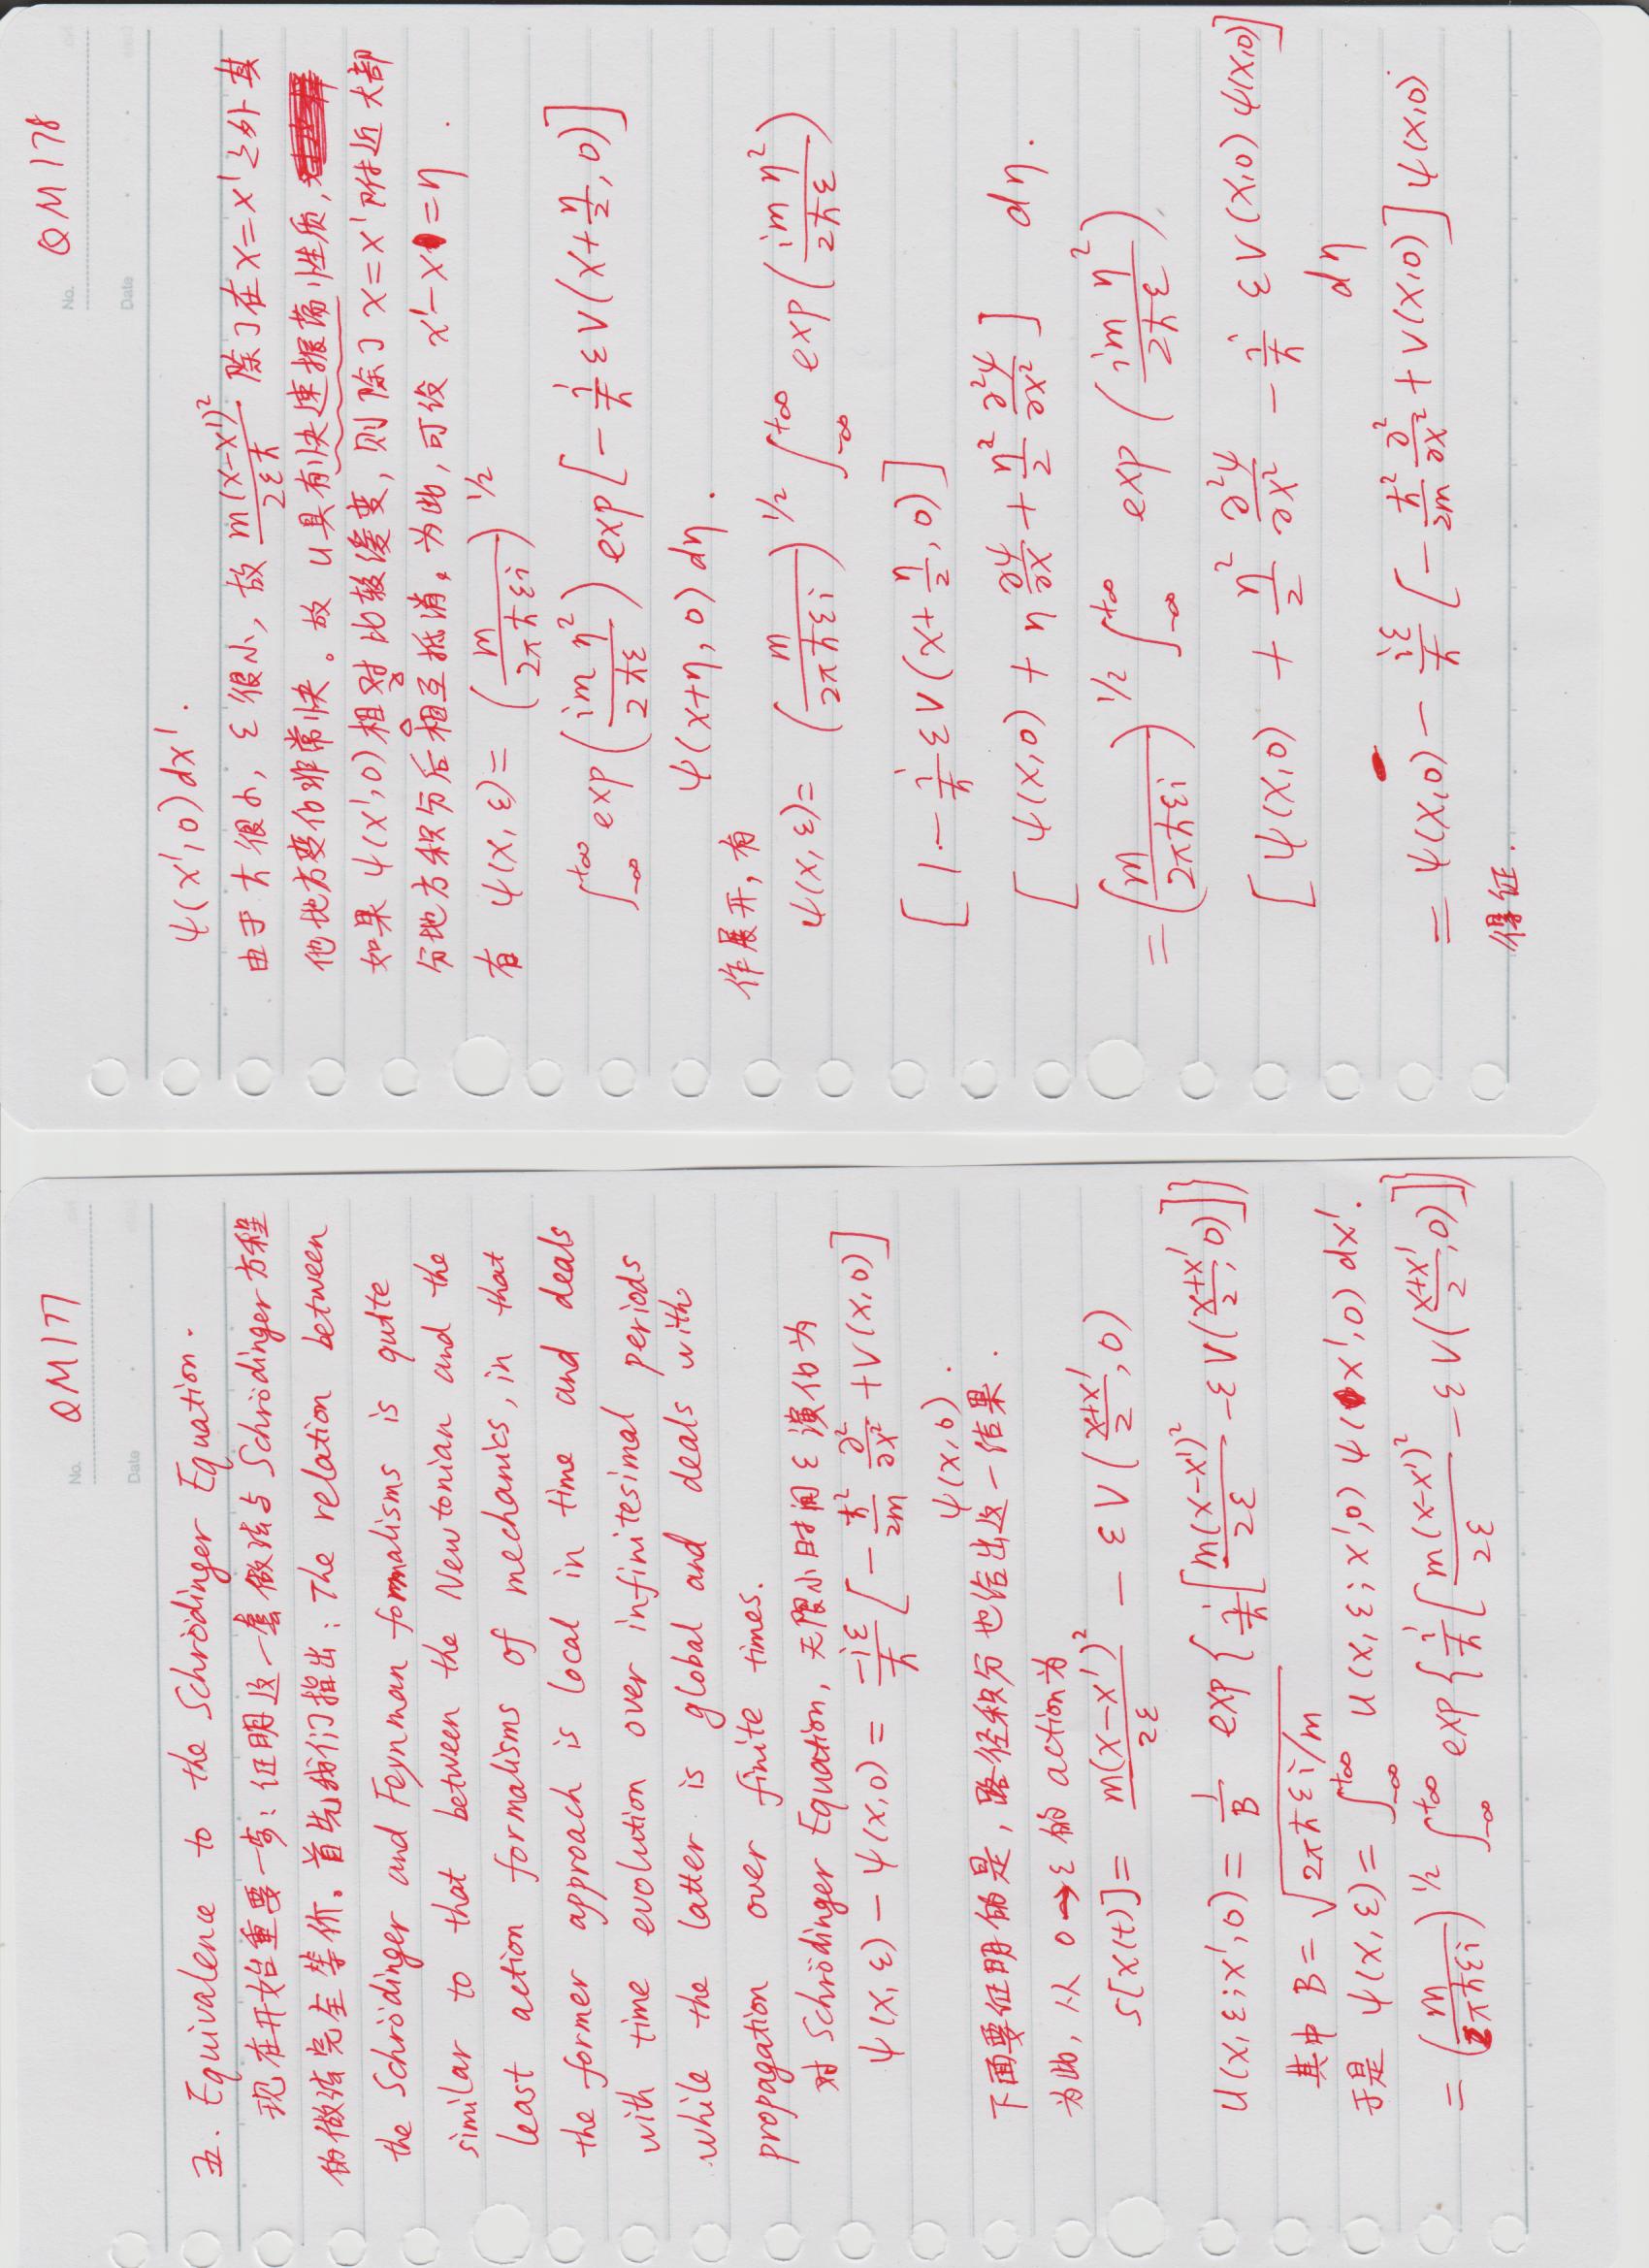 No. QM177
Date
五. Equivalence to the Schrödinger Equation.
现在开始重要一步:证明这一套做法与Schrödinger方程
的做法完全等价。首先我们指出:The relation between
the Schrödinger and Feynman formalisms is quite
similar to that between the Newtonian and the
least action formalisms of mechanics, in that
the former approach is local in time and deals
with time evolution over infinitesimal periods
while the latter is global and deals with
propagation over finite times.
对 Schrödinger Equation, 无限小时间 ε 演化为
ψ(x, ε) − ψ(x,0) = −iε/ħ [ − ħ²/2m ∂²/∂x² + V(x,0) ]
ψ(x,0).
下面要证明的是,路径积分也给出这一结果.
为此,从 0→ε 的 action为
S[x(t)] = m(x−x′)²/2ε − εV((x+x′)/2, 0)
U(x,ε;x′,0) = 1/B exp{ i/ħ [ m(x−x′)²/2ε − εV((x+x′)/2, 0) ] }
其中 B = √(2πħεi/m)
于是 ψ(x,ε) = ∫_{-∞}^{+∞} U(x,ε;x′,0) ψ(x′,0) dx′.
= (m/2πħεi)^{1/2} ∫_{-∞}^{+∞} exp{ i/ħ [ m(x−x′)²/2ε − εV((x+x′)/2, 0) ] }
No. QM178
Date
ψ(x′,0)dx′.
由于ħ很小, ε很小, 故 m(x−x′)²/2εħ 除了在x=x′之外其
他地方变化非常快。故 U具有快速振荡性质,
如果 ψ(x′,0) 相对比较缓变, 则除了 x=x′附近大部
分地方积分后相互抵消。为此, 可设 x′−x=η.
有 ψ(x,ε) = (m/2πħεi)^{1/2}
∫_{-∞}^{+∞} exp(imη²/2ħε) exp[ − i/ħ εV(x+η/2, 0) ]
ψ(x+η, 0) dη.
作展开,有
ψ(x,ε) = (m/2πħεi)^{1/2} ∫_{-∞}^{+∞} exp(imη²/2ħε)
[ 1 − i/ħ εV(x+η/2, 0) ]
[ ψ(x,0) + η ∂ψ/∂x + η²/2 ∂²ψ/∂x² ] dη.
= (m/2πħεi)^{1/2} ∫_{-∞}^{+∞} exp(imη²/2ħε)
[ ψ(x,0) + η²/2 ∂²ψ/∂x² − i/ħ εV(x,0) ψ(x,0) ]
dη
= ψ(x,0) − iε/ħ [ − ħ²/2m ∂²/∂x² + V(x,0) ] ψ(x,0)
得证.